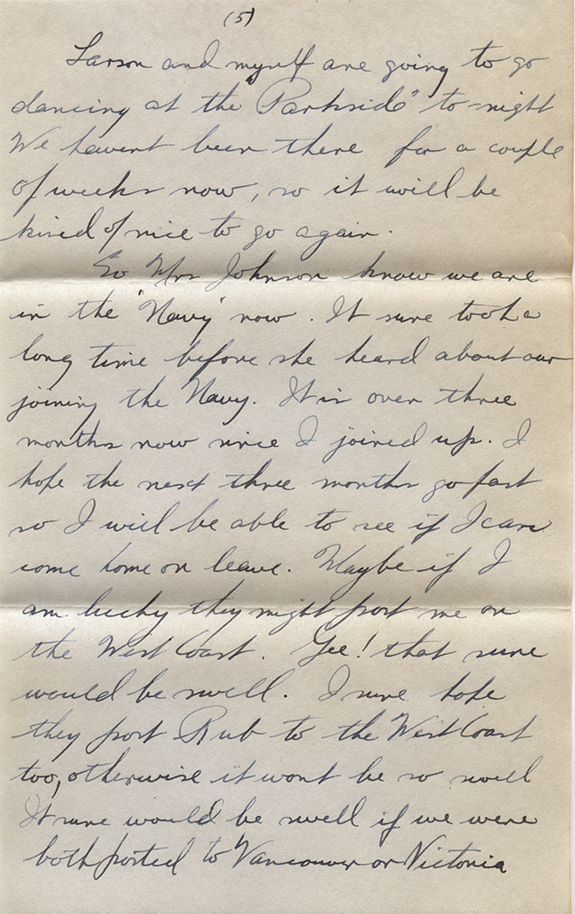 (5)
Larson and myself are going to go
dancing at the "Parkside" to-night
We havent been there for a couple
of weeks now, so it will be
kind of nice to go again.
So Mrs Johnson know we are
in the "Navy" now. It sure took a
long time before she heard about our
joining the Navy. It is over three
months now since I joined up. I
hope the next three months go fast
so I will be able to see if I can
come home on leave. Maybe if I
am lucky they might post me on
the West Coast. Gee! that sure
would be swell. I sure hope
they post Rub to the West Coast
too, otherwise it wont be so swell
It sure would be swell if we were
both posted to Vancouver or Victoria